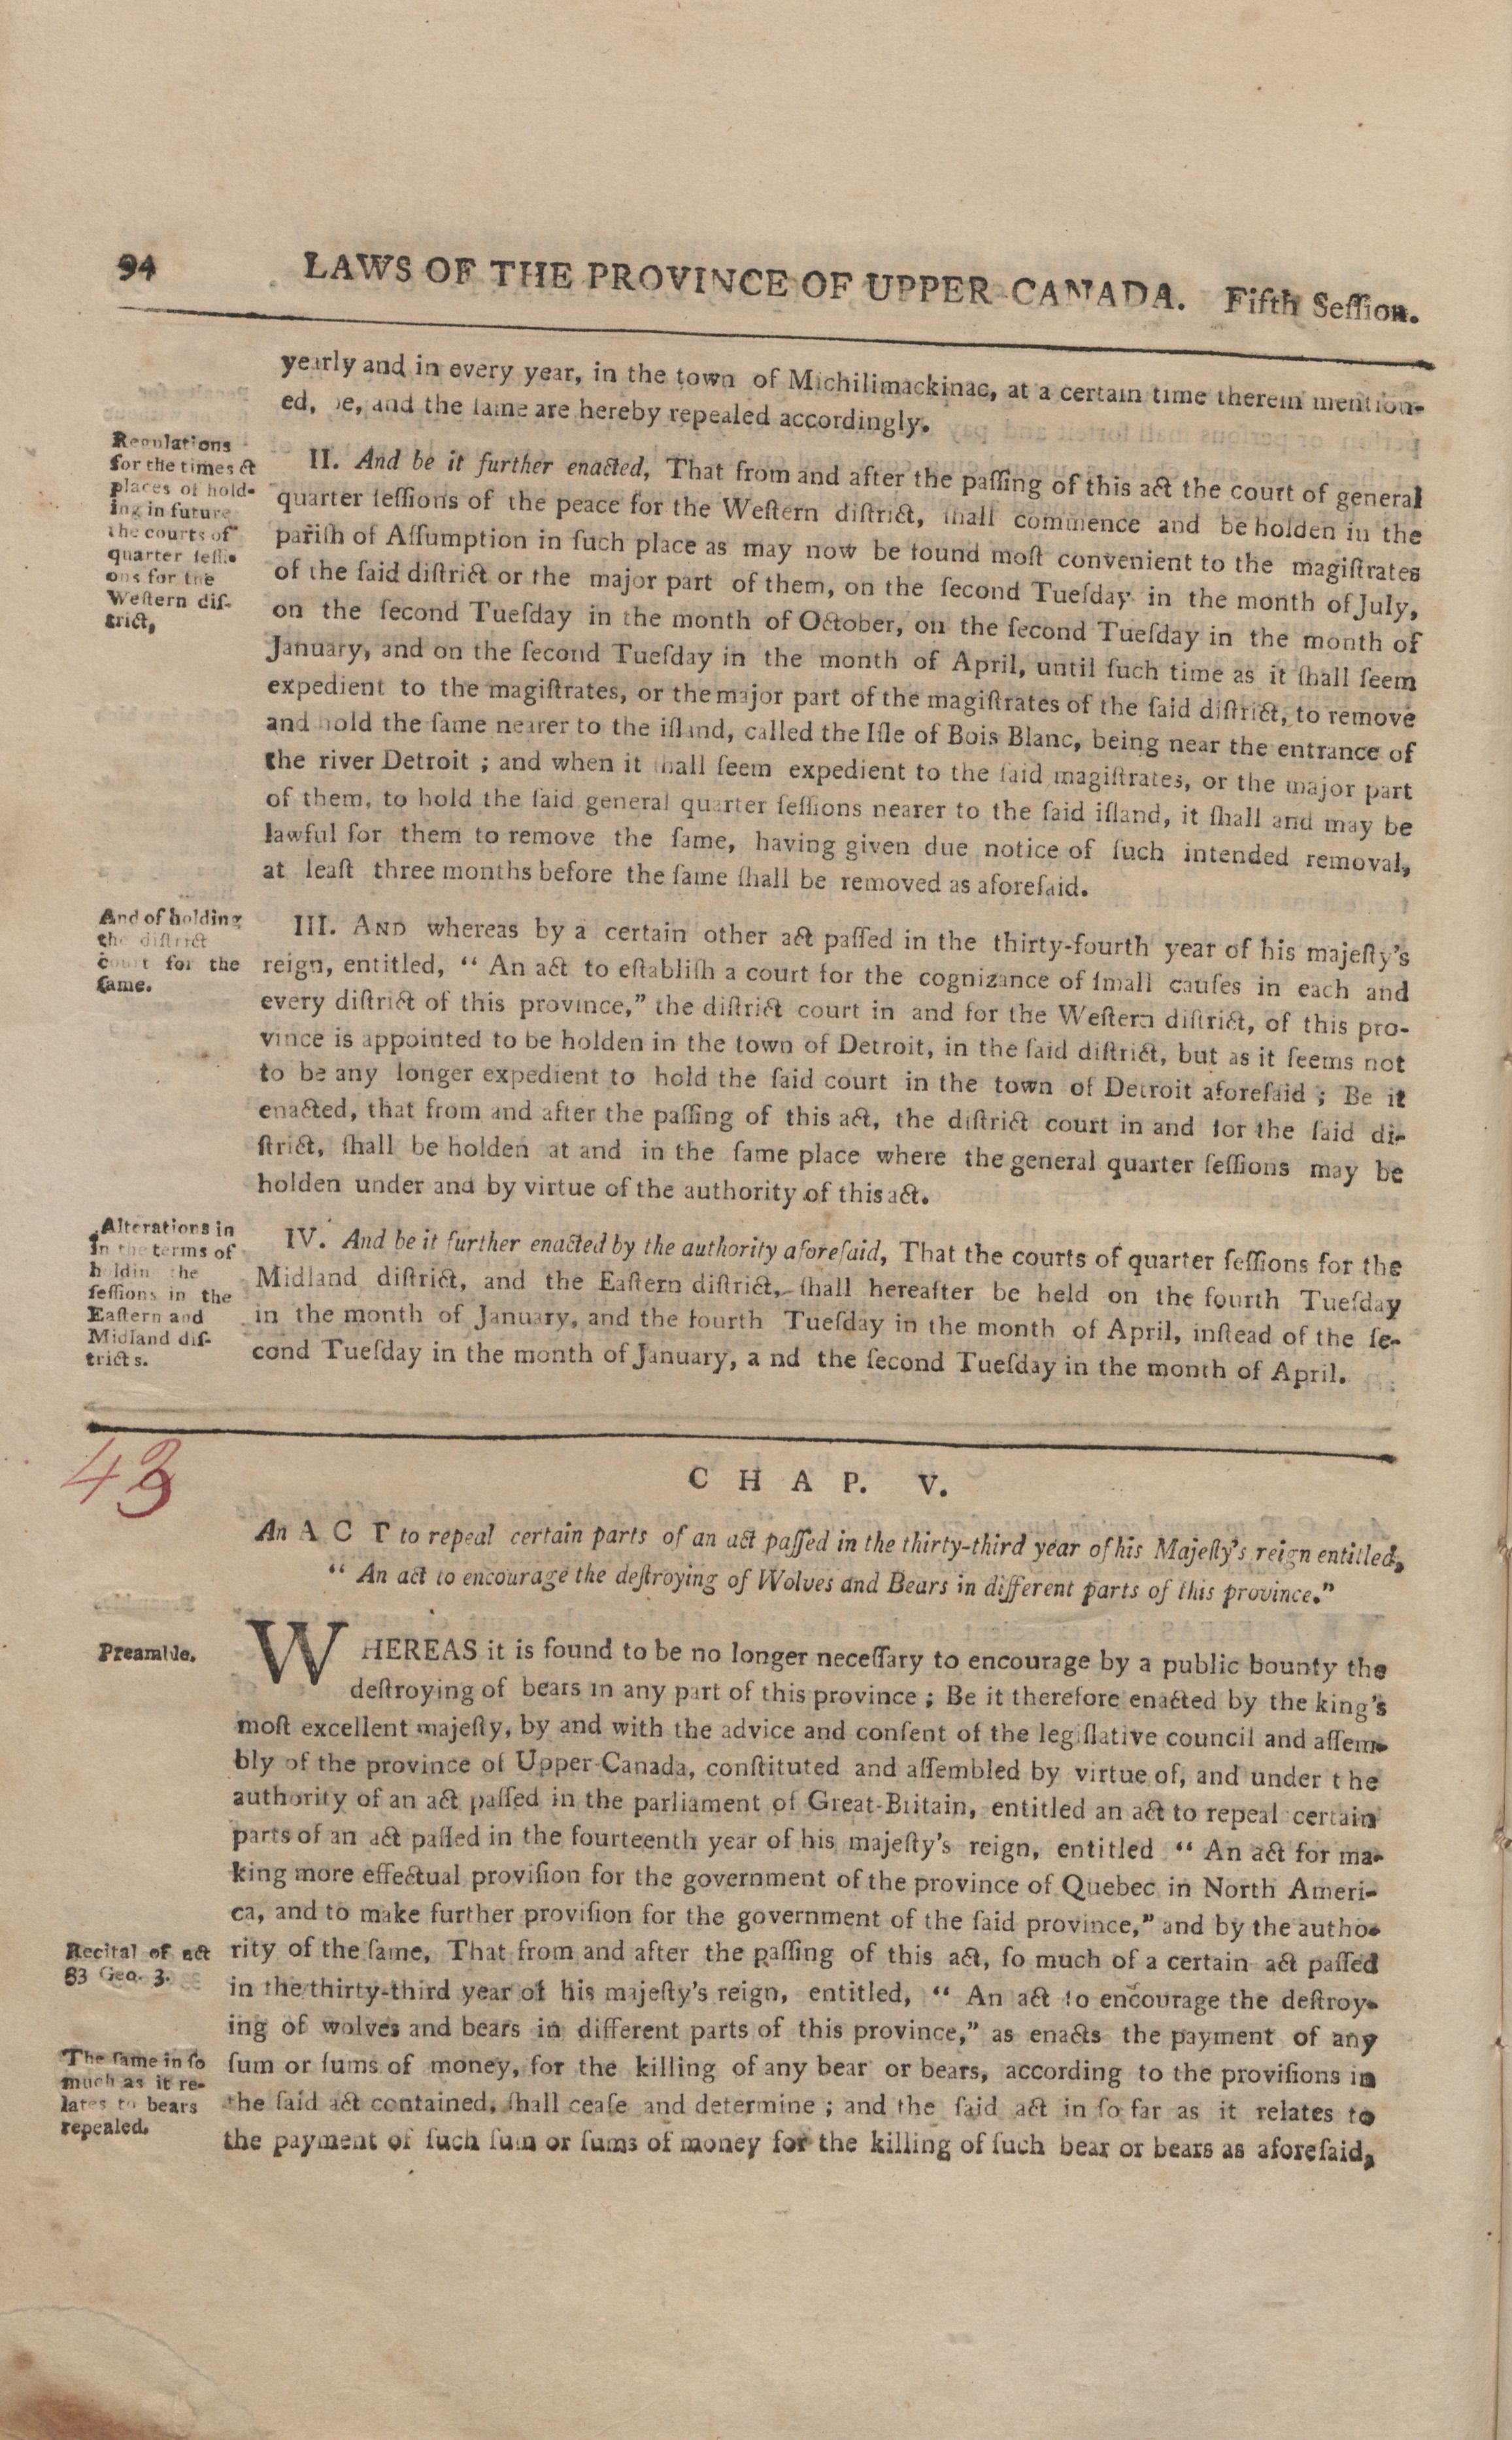 94 LAWS OF THE PROVINCE OF UPPER-CANADA. Fifth Seſſion.
yearly and in every year, in the town of Michilimackinac, at a certain time therein mention-
ed, be, and the ſame are hereby repealed accordingly.
Regulations
for the times &
places of hold-
ing in future
the courts of
quarter ſeſſi-
ons for the
Weſtern diſ-
trict,
II. And be it further enacted, That from and after the paſſing of this act the court of general
quarter ſeſſions of the peace for the Weſtern diſtrict, ſhall commence and be holden in the
pariſh of Aſſumption in ſuch place as may now be found moſt convenient to the magiſtrates
of the ſaid diſtrict or the major part of them, on the ſecond Tueſday in the month of July,
on the ſecond Tueſday in the month of October, on the ſecond Tueſday in the month of
January, and on the ſecond Tueſday in the month of April, until ſuch time as it ſhall ſeem
expedient to the magiſtrates, or the major part of the magiſtrates of the ſaid diſtrict, to remove
and hold the ſame nearer to the iſland, called the Iſle of Bois Blanc, being near the entrance of
the river Detroit ; and when it ſhall ſeem expedient to the ſaid magiſtrates, or the major part
of them, to hold the ſaid general quarter ſeſſions nearer to the ſaid iſland, it ſhall and may be
lawful for them to remove the ſame, having given due notice of ſuch intended removal,
at leaſt three months before the ſame ſhall be removed as aforeſaid.
And of holding
the diſtrict
court for the
ſame.
III. AND whereas by a certain other act paſſed in the thirty-fourth year of his majeſty's
reign, entitled, “ An act to eſtabliſh a court for the cognizance of ſmall cauſes in each and
every diſtrict of this province,” the diſtrict court in and for the Weſtern diſtrict, of this pro-
vince is appointed to be holden in the town of Detroit, in the ſaid diſtrict, but as it ſeems not
to be any longer expedient to hold the ſaid court in the town of Detroit aforeſaid ; Be it
enacted, that from and after the paſſing of this act, the diſtrict court in and for the ſaid di-
ſtrict, ſhall be holden at and in the ſame place where the general quarter ſeſſions may be
holden under and by virtue of the authority of this act.
Alterations in
in the terms of
holding the
ſeſſions in the
Eaſtern and
Midland diſ-
tricts.
IV. And be it further enacted by the authority aforeſaid, That the courts of quarter ſeſſions for the
Midland diſtrict, and the Eaſtern diſtrict, ſhall hereafter be held on the fourth Tueſday
in the month of January, and the fourth Tueſday in the month of April, inſtead of the ſe-
cond Tueſday in the month of January, a nd the ſecond Tueſday in the month of April.
43
C H A P. V.
An A C T to repeal certain parts of an act paſſed in the thirty-third year of his Majeſty's reign entitled,
“ An act to encourage the deſtroying of Wolves and Bears in different parts of this province.”
Preamble.
WHEREAS it is found to be no longer neceſſary to encourage by a public bounty the
deſtroying of bears in any part of this province ; Be it therefore enacted by the king's
moſt excellent majeſty, by and with the advice and conſent of the legiſlative council and aſſem-
bly of the province of Upper-Canada, conſtituted and aſſembled by virtue of, and under t he
authority of an act paſſed in the parliament of Great-Britain, entitled an act to repeal certain
parts of an act paſſed in the fourteenth year of his majeſty's reign, entitled “ An act for ma-
king more effectual proviſion for the government of the province of Quebec in North Ameri-
ca, and to make further proviſion for the government of the ſaid province,” and by the autho-
Recital of act
33 Geo. 3.
rity of the ſame, That from and after the paſſing of this act, ſo much of a certain act paſſed
in the thirty-third year of his majeſty's reign, entitled, “ An act to encourage the deſtroy-
ing of wolves and bears in different parts of this province,” as enacts the payment of any
The ſame in ſo
much as it re-
lates to bears
repealed.
ſum or ſums of money, for the killing of any bear or bears, according to the proviſions in
the ſaid act contained, ſhall ceaſe and determine ; and the ſaid act in ſo far as it relates to
the payment of ſuch ſum or ſums of money for the killing of ſuch bear or bears as aforeſaid,